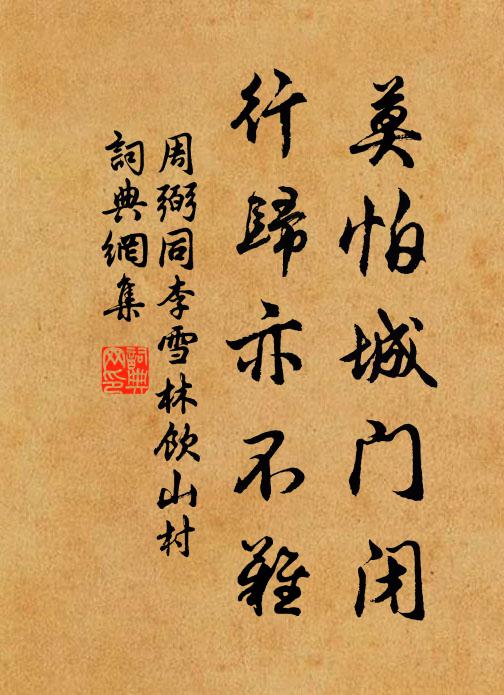 莫怕城门闭
行歸亦不難
周弼同李雪林飲山村
詞典網集
詞典
网印